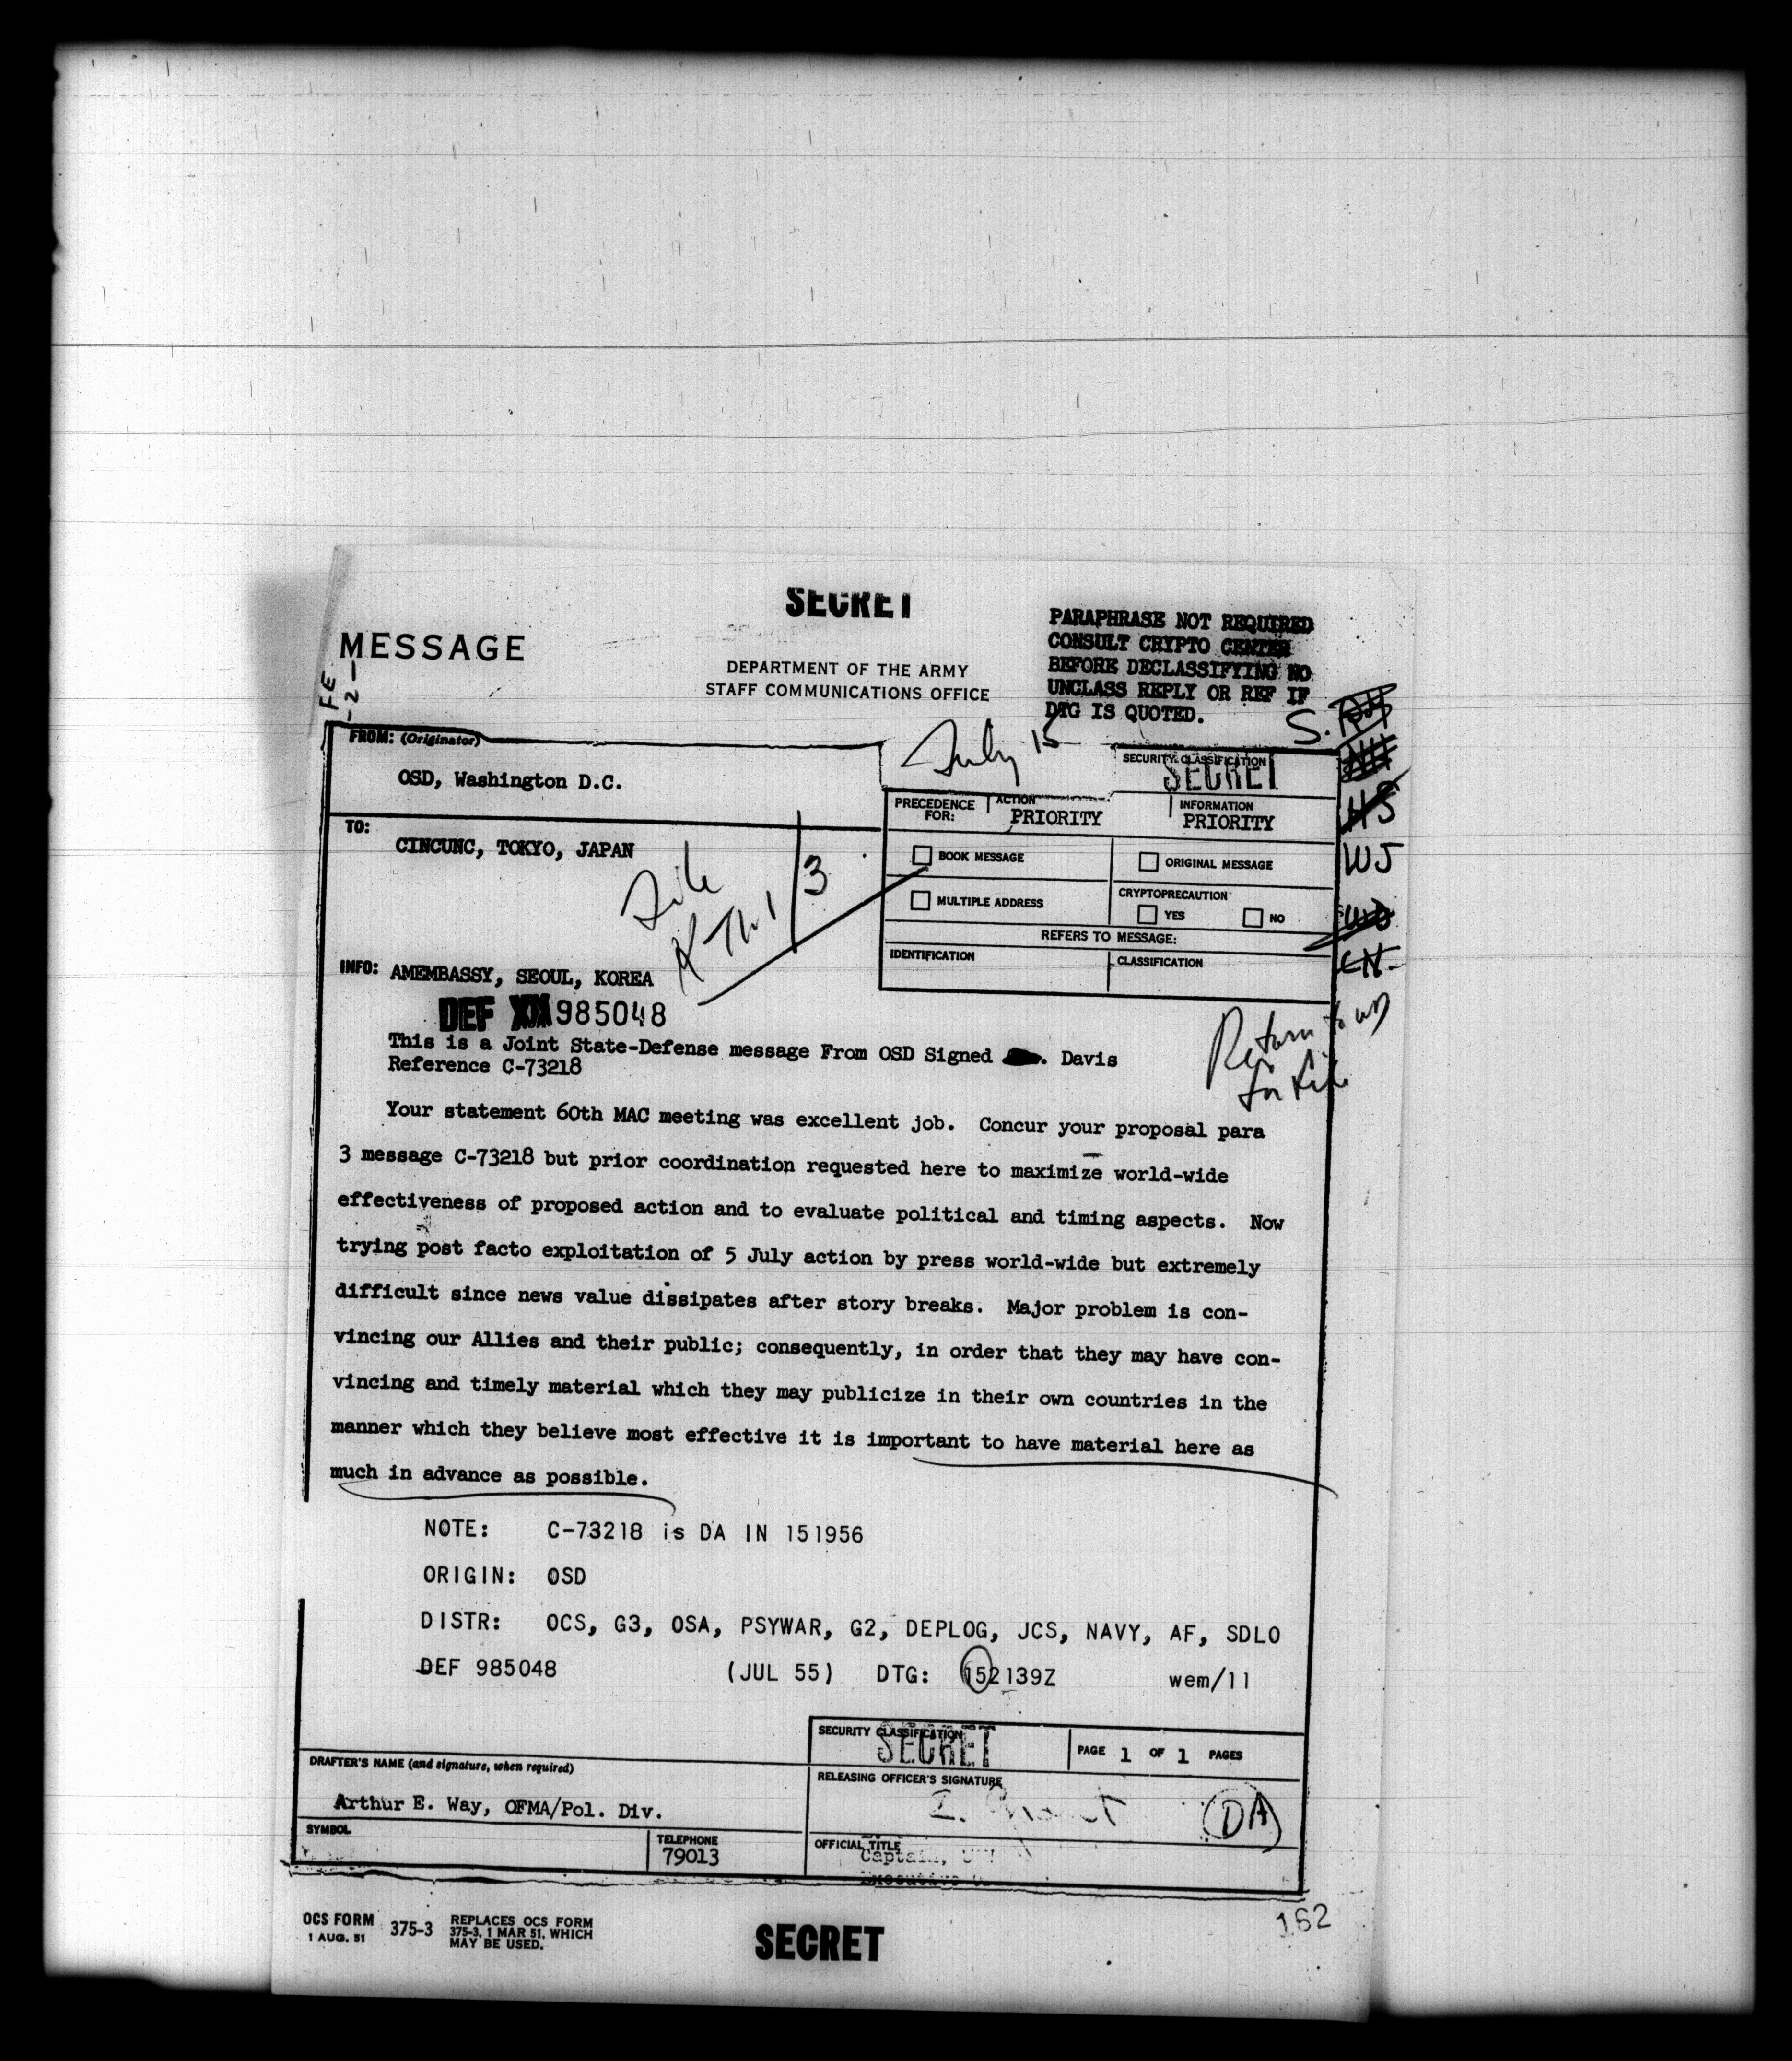 SECRET
MESSAGE
DEPARTMENT OF THE ARMY
STAFF COMMUNICATIONS OFFICE
PARAPHRASE NOT REQUIRED
CONSULT CRYPTO CENTER
BEFORE DECLASSIFYING NO
UNCLASS REPLY OR REF IF
DTG IS QUOTED.
FE
-2-
July 15
FROM: (Originator)
OSD, Washington D.C.
SECURITY CLASSIFICATION
SECRET
PRECEDENCE FOR:
ACTION
PRIORITY
INFORMATION
PRIORITY
TO:
CINCUNC, TOKYO, JAPAN
BOOK MESSAGE
ORIGINAL MESSAGE
MULTIPLE ADDRESS
CRYPTOPRECAUTION
YES
NO
REFERS TO MESSAGE:
IDENTIFICATION
CLASSIFICATION
HS
WJ
File
INFO: AMEMBASSY, SEOUL, KOREA
DEF 985048
Return to
for file
This is a Joint State-Defense message From OSD Signed . Davis
Reference C-73218
Your statement 60th MAC meeting was excellent job. Concur your proposal para
3 message C-73218 but prior coordination requested here to maximize world-wide
effectiveness of proposed action and to evaluate political and timing aspects. Now
trying post facto exploitation of 5 July action by press world-wide but extremely
difficult since news value dissipates after story breaks. Major problem is con-
vincing our Allies and their public; consequently, in order that they may have con-
vincing and timely material which they may publicize in their own countries in the
manner which they believe most effective it is important to have material here as
much in advance as possible.
NOTE: C-73218 is DA IN 151956
ORIGIN: OSD
DISTR: OCS, G3, OSA, PSYWAR, G2, DEPLOG, JCS, NAVY, AF, SDLO
DEF 985048 (JUL 55) DTG: 152139Z wem/11
SECURITY CLASSIFICATION
SECRET
PAGE 1 OF 1 PAGES
DRAFTER'S NAME (and signature, when required)
Arthur E. Way, OFMA/Pol. Div.
RELEASING OFFICER'S SIGNATURE
DA
SYMBOL
TELEPHONE
79013
OFFICIAL TITLE
Captain,
Executive
OCS FORM 375-3
1 AUG. 51
REPLACES OCS FORM
375-3, 1 MAR 51, WHICH
MAY BE USED.
SECRET
162